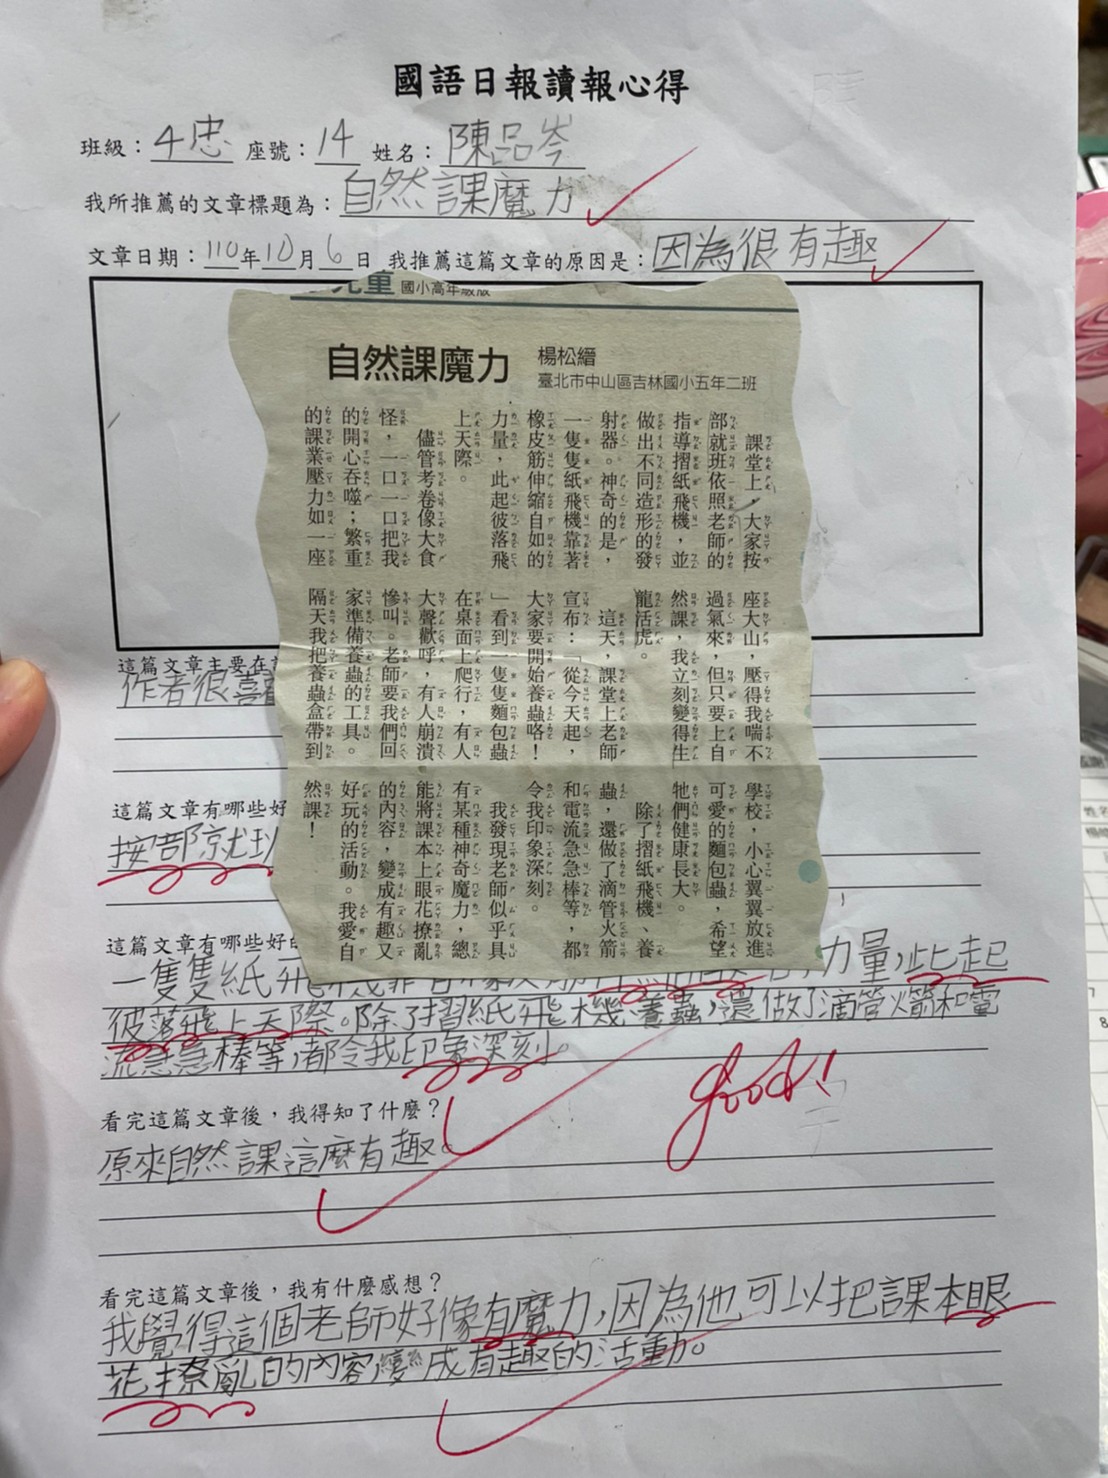 國語日報讀報心得
班級：4忠 座號：14 姓名：陳品岑
我所推薦的文章標題為：自然課魔力
文章日期：110年10月6日 我推薦這篇文章的原因是：因為很有趣
兒童 國小高年級版
自然課魔力
楊松縉
臺北市中山區吉林國小五年二班
課堂上，大家按
部就班依照老師的
指導摺紙飛機，並
做出不同造形的發
射器。神奇的是，
一隻隻紙飛機靠著
橡皮筋伸縮自如的
力量，此起彼落飛
上天際。
儘管考卷像大食
怪，一口一口把我
的開心吞噬；繁重
的課業壓力如一座
座大山，壓得我喘不
過氣來，但只要上自
然課，我立刻變得生
龍活虎。
這天，課堂上老師
宣布：「從今天起，
大家要開始養蟲咯！
」看到一隻隻麵包蟲
在桌面上爬行，有人
大聲歡呼，有人崩潰
慘叫。老師要我們回
家準備養蟲的工具。
隔天我把養蟲盒帶到
學校，小心翼翼放進
可愛的麵包蟲，希望
牠們健康長大。
除了摺紙飛機、養
蟲，還做了滴管火箭
和電流急急棒等，都
令我印象深刻。
我發現老師似乎具
有某種神奇魔力，總
能將課本上眼花撩亂
的內容，變成有趣又
好玩的活動。我愛自
然課！
這篇文章主要在
作者很喜
這篇文章有哪些好
按部就班
這篇文章有哪些好的
一隻隻紙飛機靠著 力量，此起
彼落飛上天際。除了摺紙飛機、養蟲，還做了滴管火箭和電
流急急棒等，都令我印象深刻。
good!
看完這篇文章後，我得知了什麼？
原來自然課這麼有趣。
看完這篇文章後，我有什麼感想？
我覺得這個老師好像有魔力，因為他可以把課本眼
花撩亂的內容變成有趣的活動。